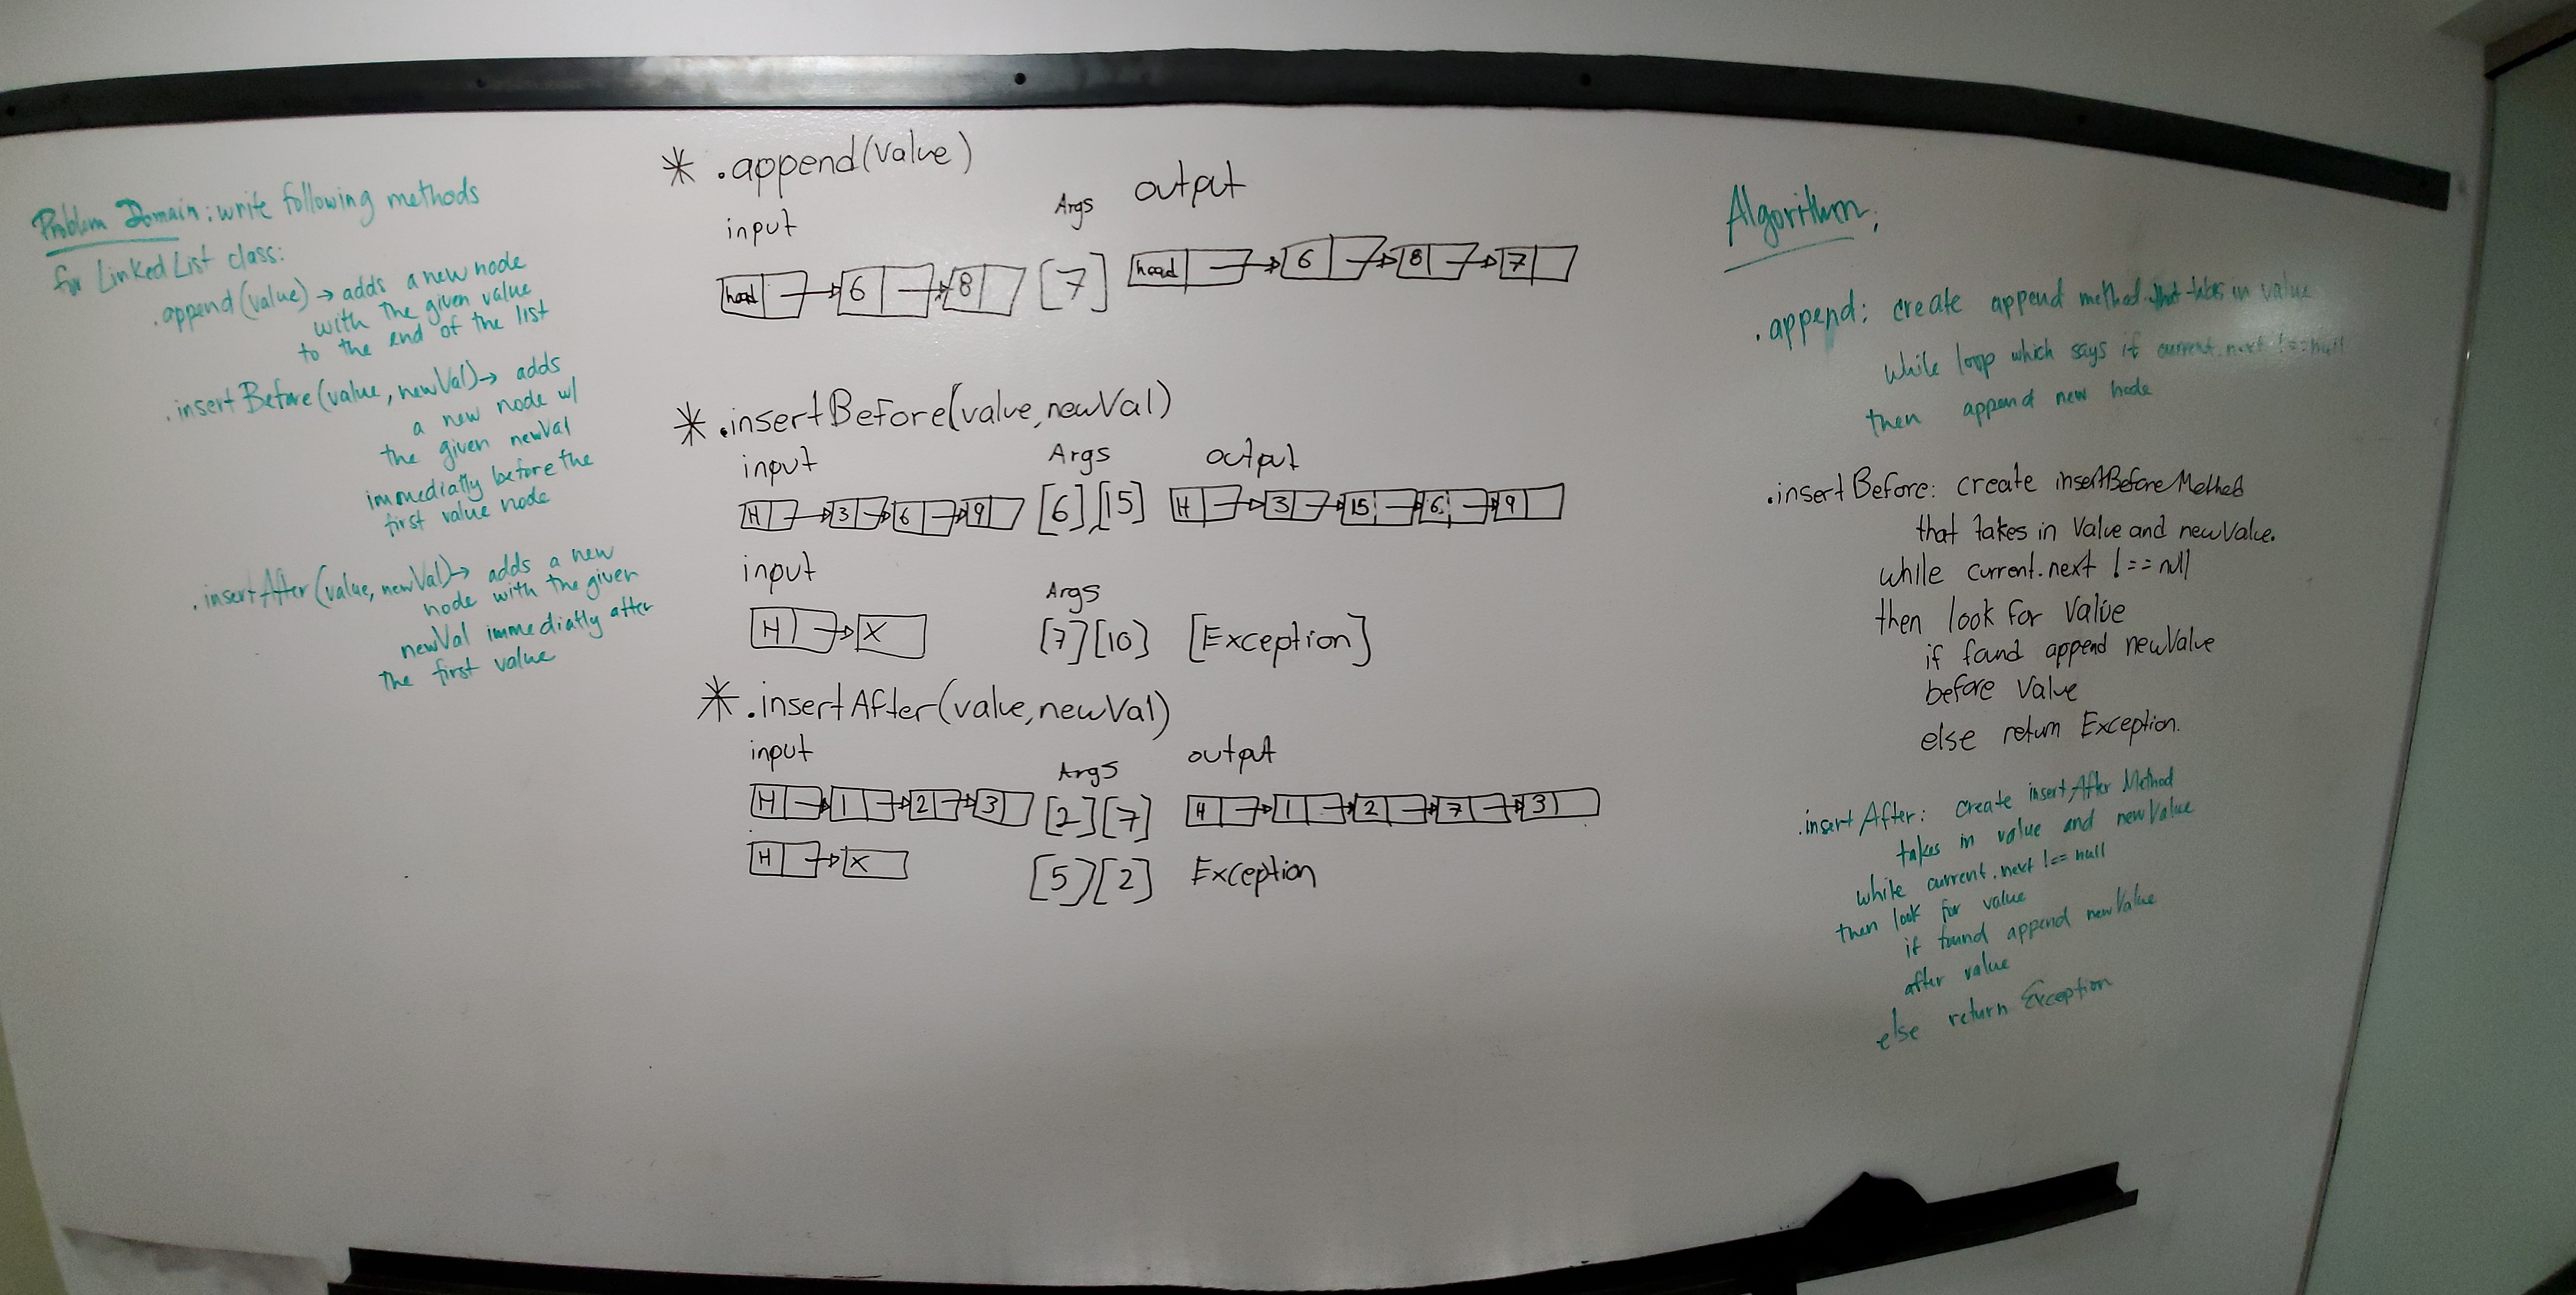 Problem Domain: write following methods
for Linked List class:
.append(value) → adds a new node
with the given value
to the end of the list
.insertBefore(value, newVal) → adds
a new node w/
the given newVal
immediatly before the
first value node
.insertAfter(value, newVal) → adds a new
node with the given
newVal immediatly after
the first value
* .append(value)
input Args output
head → 6 → 8 [7] head → 6 → 8 → 7
* .insertBefore(value, newVal)
input Args output
H → 3 → 6 → 9 [6],[15] H → 3 → 15 → 6 → 9
input Args
H → X [7][10] [Exception]
* .insertAfter(value, newVal)
input Args output
H → 1 → 2 → 3 [2][7] H → 1 → 2 → 7 → 3
H → X [5][2] Exception
Algorithm:
.append: create append method that takes in value
while loop which says if current.next !== null
then append new node
.insertBefore: create insertBefore Method
that takes in Value and newValue.
while current.next !== null
then look for Value
if found append newValue
before Value
else return Exception.
.insertAfter: create insertAfter Method
takes in value and newValue
while current.next !== null
then look for value
if found append newValue
after value
else return Exception